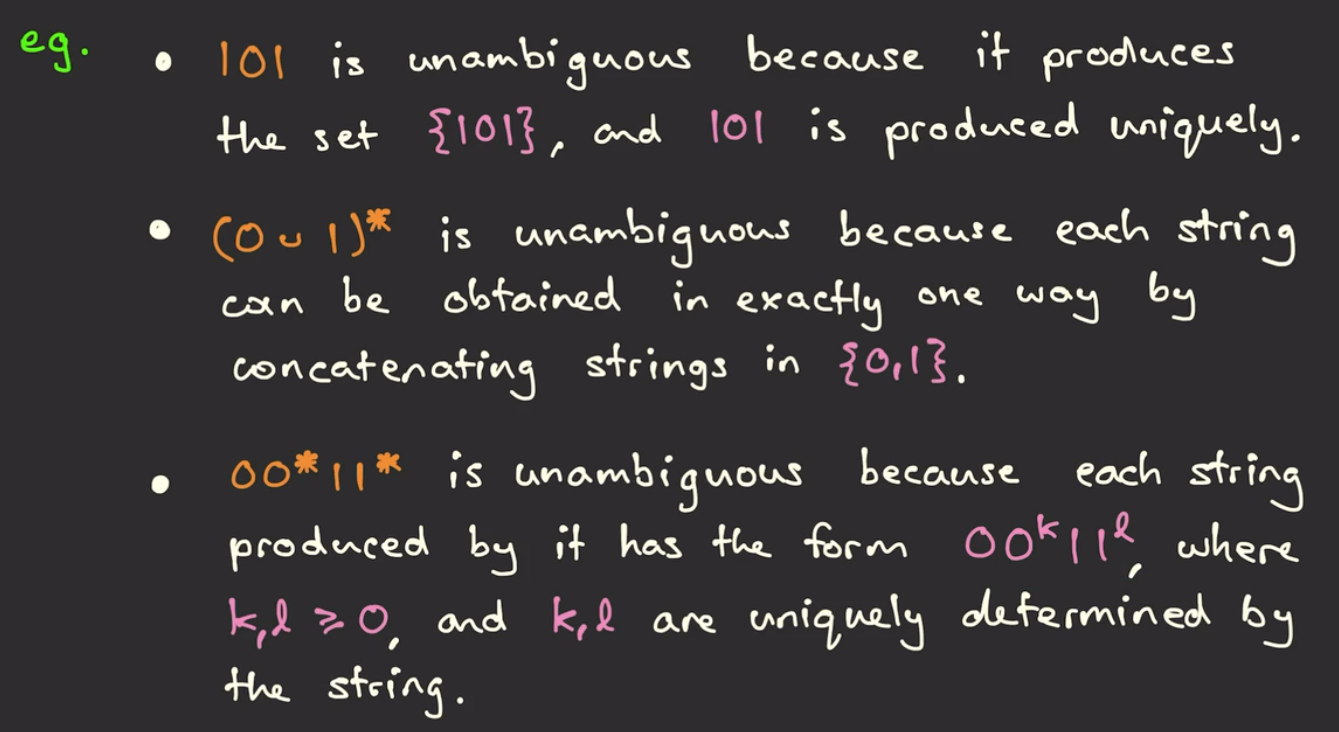 eg. • 101 is unambiguous because it produces
the set {101}, and 101 is produced uniquely.
• (0 ∪ 1)* is unambiguous because each string
can be obtained in exactly one way by
concatenating strings in {0,1}.
• 00*11* is unambiguous because each string
produced by it has the form 00ᵏ11ˡ, where
k,l ⩾ 0, and k,l are uniquely determined by
the string.